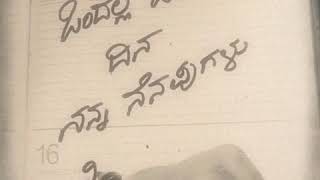 ಒಂದಲ್ಲ
ದಿನ
ನನ್ನ ನೆನಪುಗಳು
16